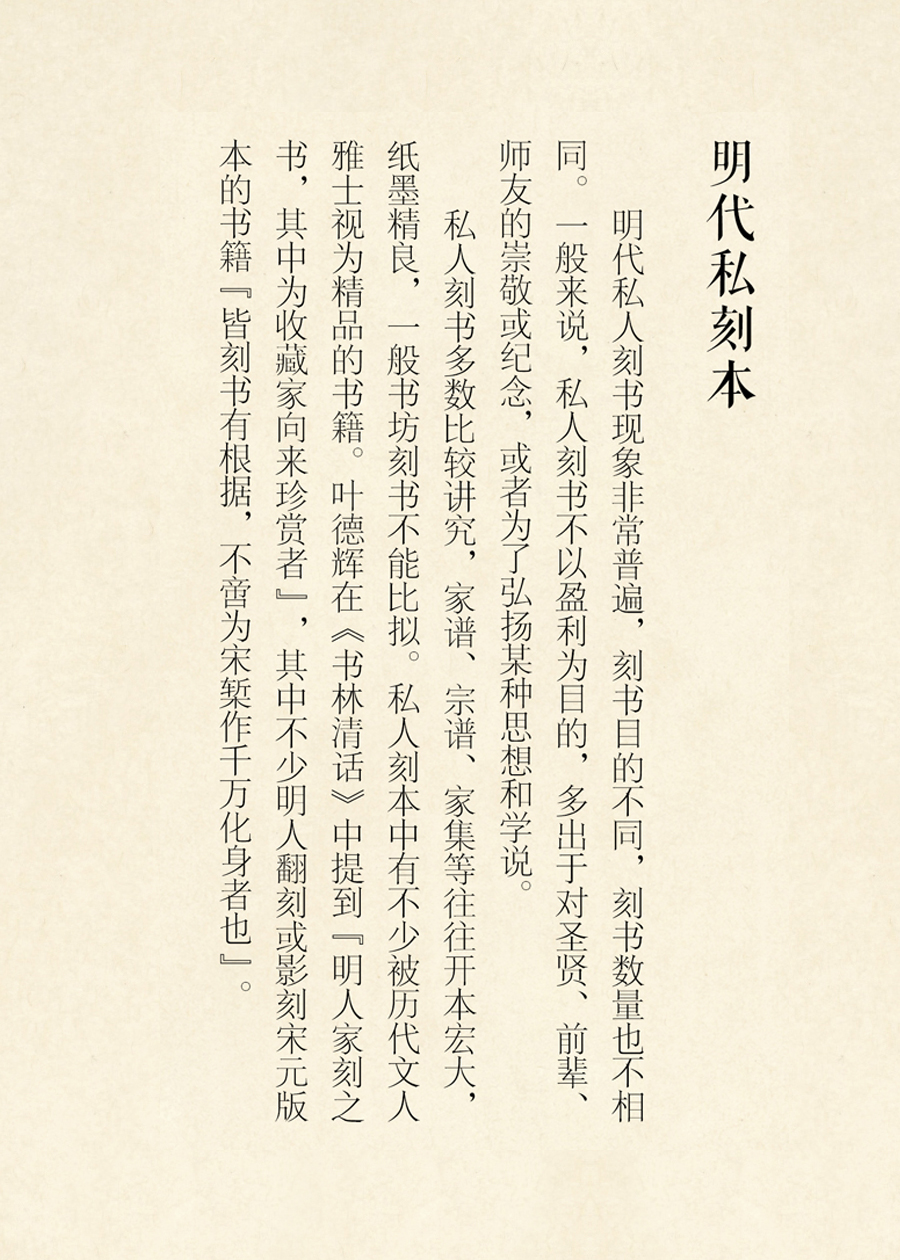 明代私刻本
明代私人刻书现象非常普遍，刻书目的不同，刻书数量也不相
同。一般来说，私人刻书不以盈利为目的，多出于对圣贤、前辈、
师友的崇敬或纪念，或者为了弘扬某种思想和学说。
私人刻书多数比较讲究，家谱、宗谱、家集等往往开本宏大，
纸墨精良，一般书坊刻书不能比拟。私人刻本中有不少被历代文人
雅士视为精品的书籍。叶德辉在《书林清话》中提到『明人家刻之
书，其中为收藏家向来珍赏者』，其中不少明人翻刻或影刻宋元版
本的书籍『皆刻书有根据，不啻为宋椠作千万化身者也』。